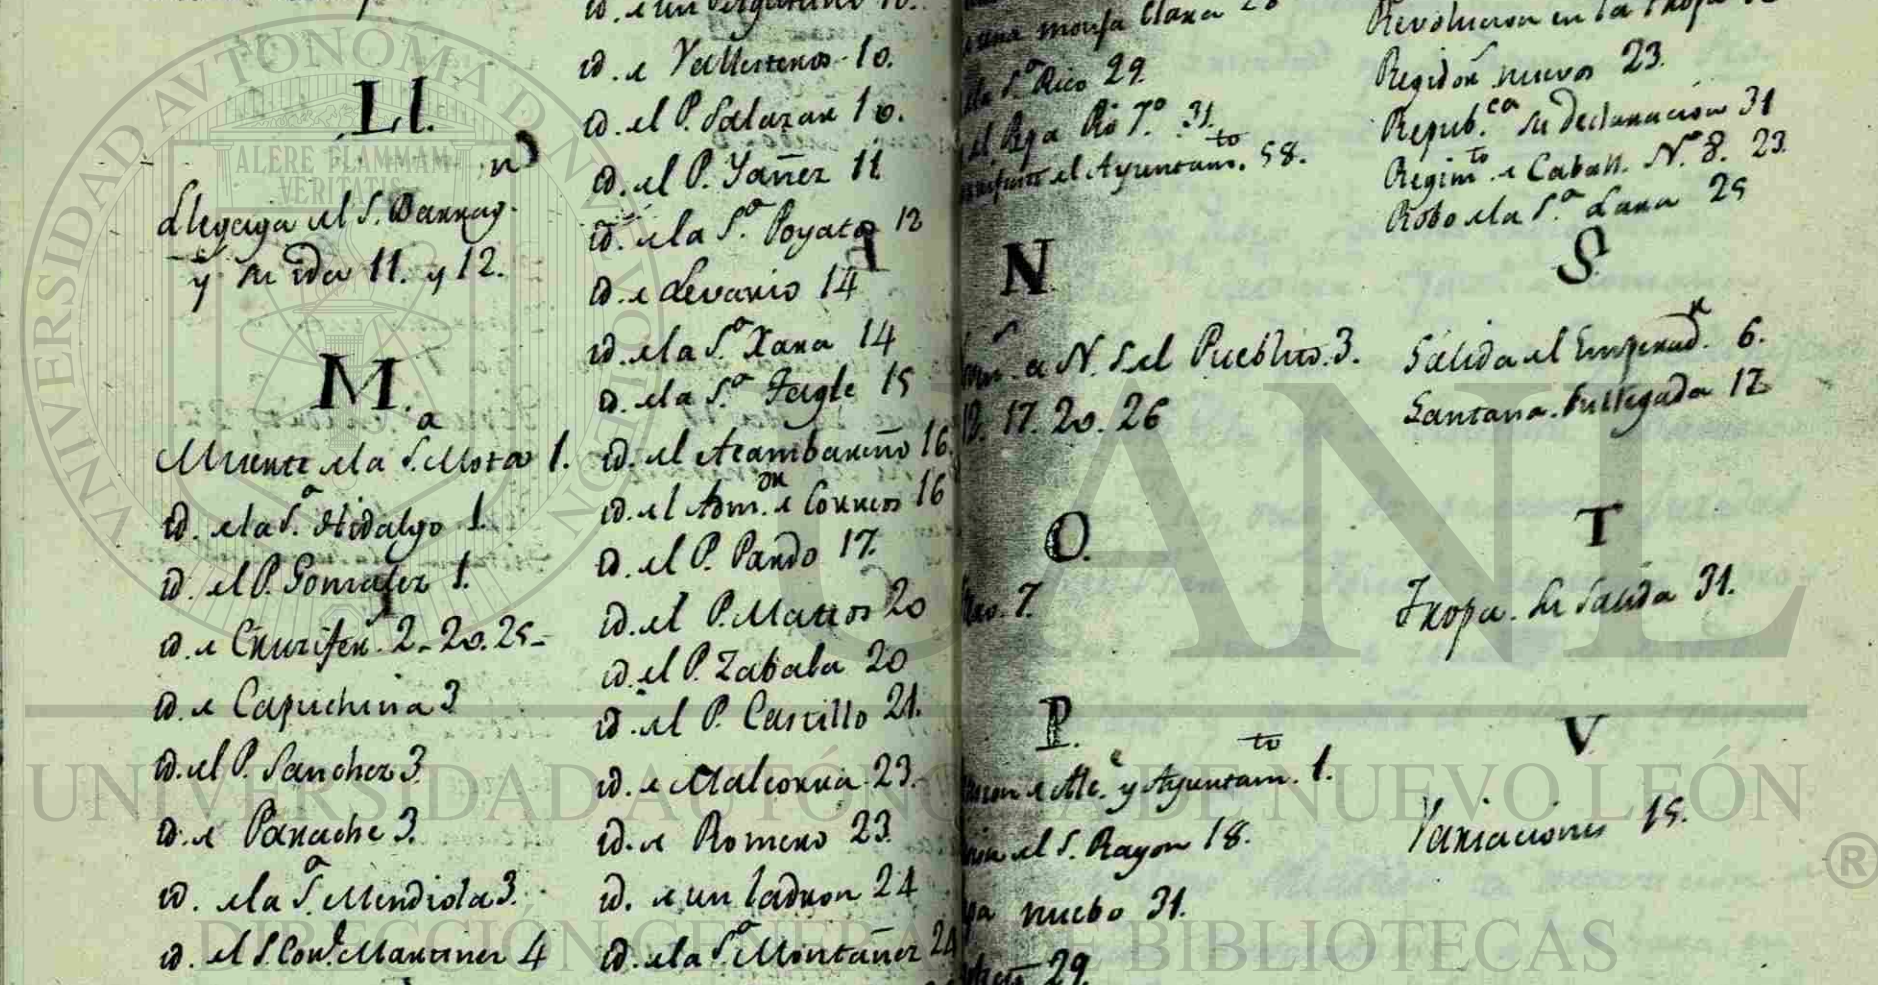 Ll.
Llegaga del S. Barrag.n
y su ida 11. y 12.
M.
Muerte de la S.a Mota 1.
id. de la S.a Hidalgo 1.
id. del P. Gonzalez 1.
id. de Cruzifen. 2. 20. 25
id. de Capuchina 3
id. del P. Sanchez 3.
id. de Parache 3.
id. de la S.a Mendiola 3.
id. del S. Con.e Martinez 4
id. de un 10.
id. de Vallesteros 10.
id. del P. Salazar 10.
id. del P. Yañez 11
id. de la S.a Poyato 12
id. de Levario 14
id. de la S.a Xara 14
id. de la S.a Tagle 15
id. del Acambareño 16.
id. del Adm.or de Correos 16
id. del P. Pardo 17.
id. del P. Matos 20
id. del P. Zabala 20
id. del P. Castillo 21.
id. de Malcorra 23.
id. de Romero 23.
id. de un ladron 24
id. de la S.a Montañez 24
una monja Clara 28
la S.a Rico 29.
31.
el Ayuntam.to 58.
N
a N. S. del Pueblito. 3.
17. 20. 26
O.
7.
P.
de Alc.e y Ayuntam.to 1.
del S. Rayon 18.
nuebo 31.
29.
Revolucion en la tropa
Regidor nuevos 23.
Repub.ca su declaracion 31
Regim.to de Caball. N.º 8. 23
Robo de la S.a Lara 25
S.
Salida del Emperad.r 6.
Santana. su llegada 12
T
Tropa. su salida 31.
V
Variaciones 15.
UNIVERSIDAD AUTÓNOMA DE NUEVO LEÓN
ALERE FLAMMAM
VERITATIS
UANL
UNIVERSIDAD AUTÓNOMA DE NUEVO LEÓN
®
DIRECCIÓN GENERAL DE BIBLIOTECAS